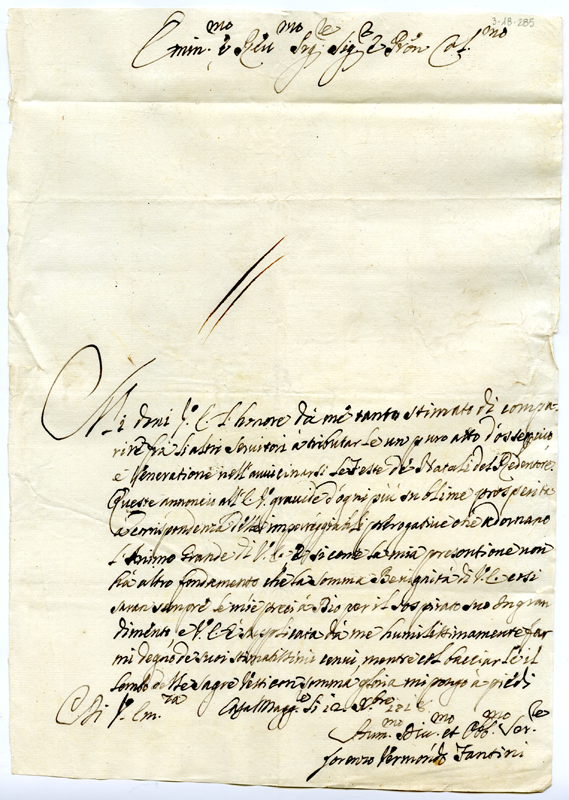 3-18-285
Emin.mo e Rev.mo Sig.re Sig.re e Pron Col.mo
Mi doni V. E. l'honore da me tanto stimato di compa-
rire fra li altri servitori a tributarle un puro atto d'ossequio
e Veneratione nell'avvicinarsi le feste de Natali del Redentore.
Queste annoncio all'E. V. gravide d'ogni più sublime prosperità
a corrisponsenza dell' impareggiabili prerogative che adornano
l'Animo Grande di V. E. E si come la mia presontione non
hà altro fondamento che la somma Benignità di V. E. cosi
saran sempre le mie preci a Dio per il sospirato suo Ingran-
dimento, e V. E. supplicata da me humilissimamente far
mi degno de suoi stimatissimi cenni, mentre col bacciarle il
lembo delle sagre vesti con somma gloria mi pongo a piedi
Di V. Em.za Casal Magg.re li 12 Xbre
Hum.mo Div.mo et Obb.mo Ser.re
Lorenzo Vermondo Fantini